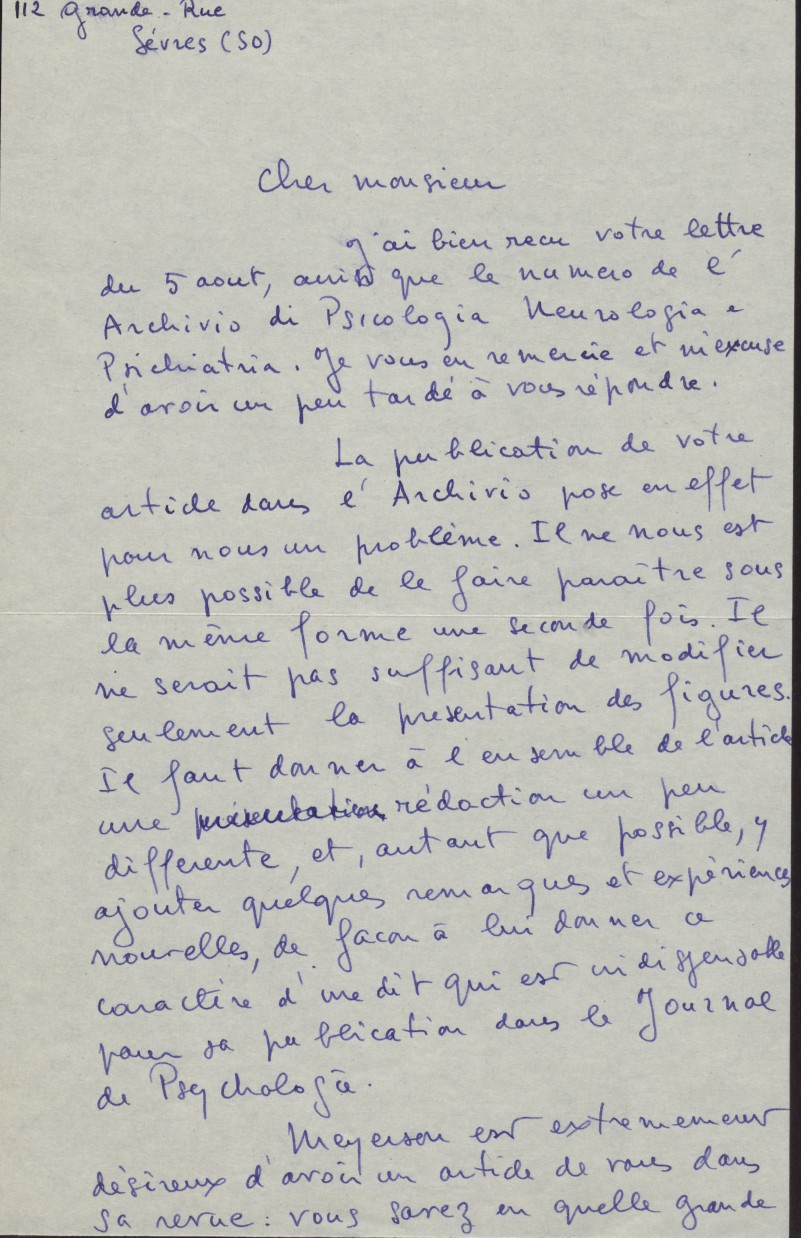 112 Grande-Rue
Sèvres (SO)
Cher monsieur
J'ai bien recu votre lettre
du 5 aout, ainsi que le numero de l'
Archivio di Psicologia Neurologia e
Psichiatria. Je vous en remercie et m'excuse
d'avoir un peu tardé à vous répondre.
La publication de votre
article dans l'Archivio pose en effet
pour nous un problème. Il ne nous est
plus possible de le faire paraître sous
la même forme une seconde fois. Il
ne serait pas suffisant de modifier
seulement la presentation des figures.
Il faut donner à l'ensemble de l'article
une presentation rédaction un peu
differente, et, autant que possible, y
ajouter quelques remarques et expériences
nouvelles, de facon à lui donner ce
caractère d'inedit qui est indispensable
pour sa publication dans le Journal
de Psychologie.
Meyerson est extremement
désireux d'avoir un article de vous dans
sa revue : vous savez en quelle grande